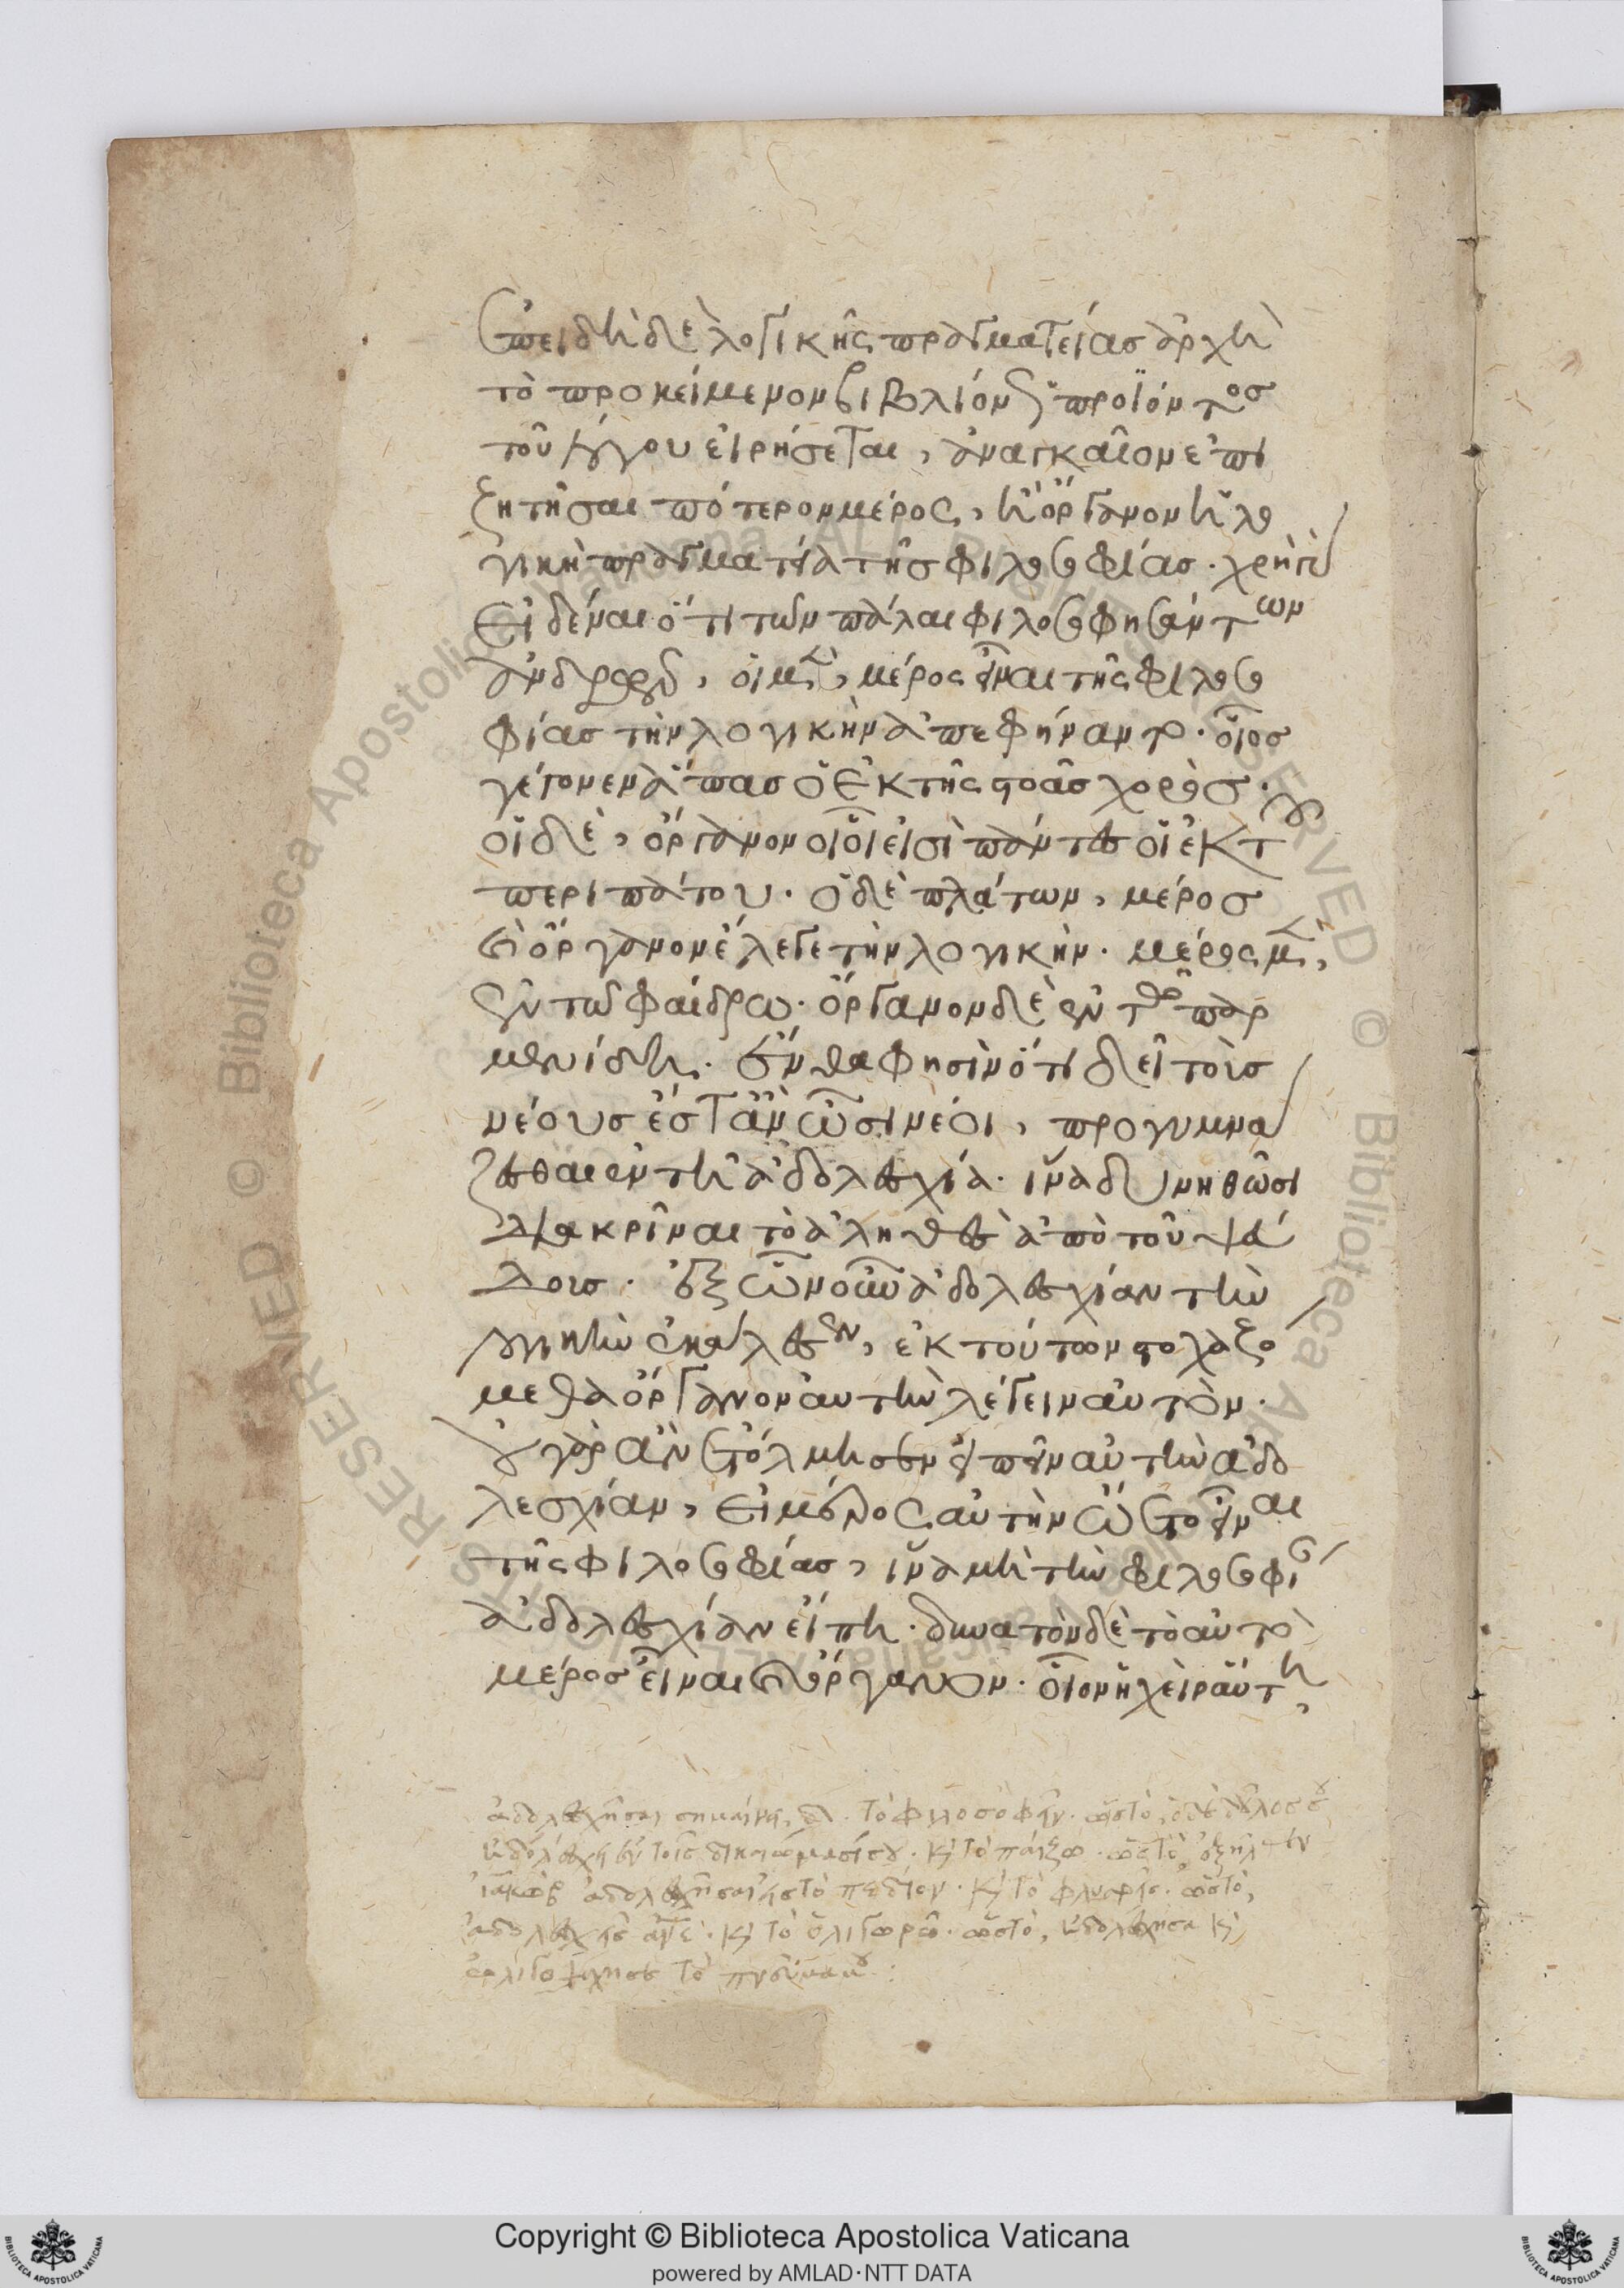 Ἐπειδὴ δὲ λογικῆς πραγματείας ἀρχὴ
τὸ προκείμενον βιβλίον ὡς προϊόντος
τοῦ λόγου εἰρήσεται, ἀναγκαῖον ἐπι
ζητῆσαι πότερον μέρος, ἢ ὄργανον ἡ λο
γικὴ πραγματεία τῆς φιλοσοφίας. χρὴ
εἰδέναι ὅτι τῶν πάλαι φιλοσοφησάντων
ἀνδρῶν, οἱ μὲν, μέρος εἶναι τῆς φιλοσο
φίας τὴν λογικὴν ἀπεφήναντο. οἷος
γέγονεν ἅπας ὁ ἐκ τῆς στοᾶς χορός.
οἱ δὲ, ὄργανον οἷοί εἰσι πάντες οἱ ἐκ τοῦ
περιπάτου. ὁ δὲ πλάτων, μέρος
καὶ ὄργανον ἔλεγε τὴν λογικήν. μέρος μὲν,
ἐν τῶ φαίδρω. ὄργανον δὲ ἐν τῶ παρ
μενίδη. ἔνθα φησὶν ὅτι δεῖ τοὺς
νέους ἔστ' ἂν ὦσι νέοι, προγυμνά
ζεσθαι ἐν τῆ ἀδολεσχία. ἵνα δυνηθῶσι
διακρῖναι τὸ ἀληθὲς ἀπὸ τοῦ ψεύ
δους. ἐξ ὧν οὖν ἀδολεσχίαν τὴν
λογικὴν ἐκάλεσεν, ἐκ τούτων στοχαζό
μεθα ὄργανον αὐτὴν λέγειν αὐτόν.
οὐ γὰρ ἂν ἐτόλμησεν εἰπεῖν αὐτὴν ἀδο
λεσχίαν, εἰ μέρος αὐτὴν ὤετο εἶναι
τῆς φιλοσοφίας, ἵνα μὴ τὴν φιλοσοφίαν
ἀδολεσχίαν εἴπη. δυνατὸν δὲ τὸ αὐτὸ
μέρος εἶναι καὶ ὄργανον. οἷον ἡ χεὶρ αὕτη,
ἀδολεσχῆσαι σημαίνει, τὸ φιλοσοφεῖν. ὡς τὸ, ὁ δὲ δοῦλός σου
ἠδολέσχει ἐν τοῖς δικαιώμασί σου. καὶ τὸ παίζω. ὡς τὸ, ἐξῆλθεν
ἰσαὰκ ἀδολεσχῆσαι εἰς τὸ πεδίον. καὶ τὸ φλυαρεῖς. ὡς τὸ,
ἀδολεσχεῖς. καὶ τὸ ὀλιγωρῶ. ὡς τὸ, ἠδολέσχησα καὶ
ὠλιγοψύχησε τὸ πνεῦμά μου:
Copyright © Biblioteca Apostolica Vaticana
powered by AMLAD·NTT DATA